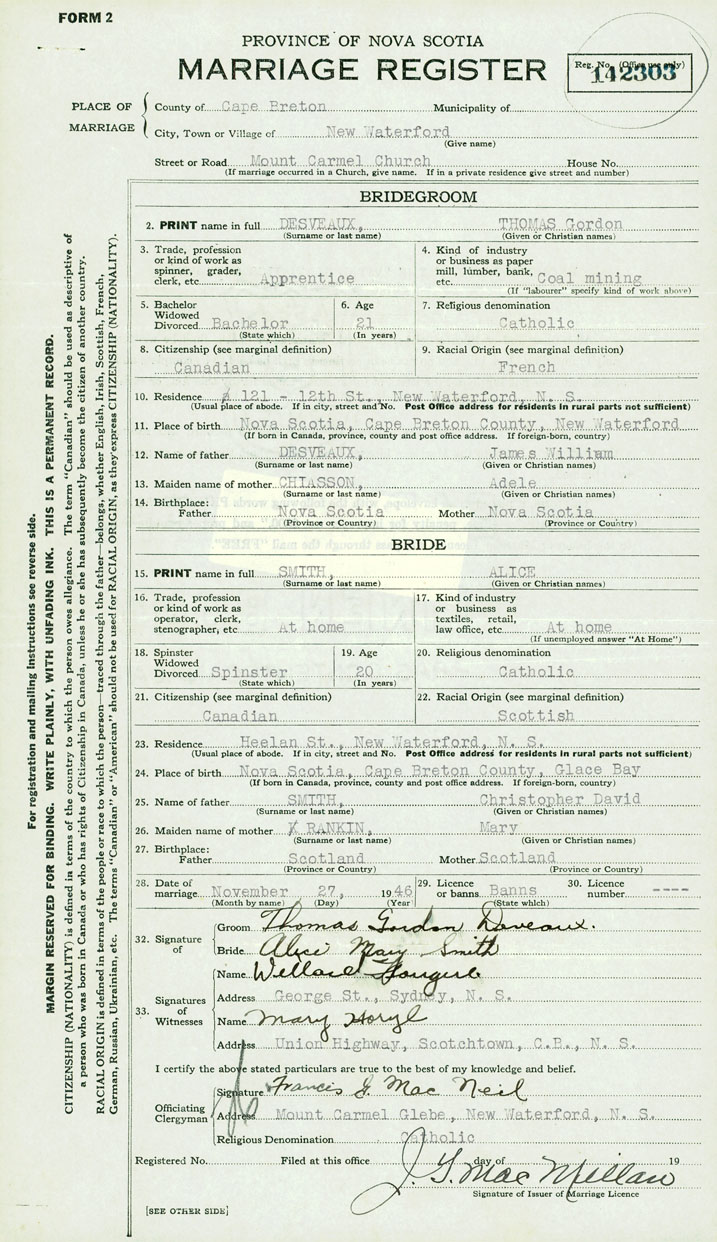 FORM 2
PROVINCE OF NOVA SCOTIA
MARRIAGE REGISTER
Reg. No. (Office use only)
142303
PLACE OF MARRIAGE
County of Cape Breton Municipality of
City, Town or Village of New Waterford
(Give name)
Street or Road Mount Carmel Church House No.
(If marriage occurred in a Church, give name. If in a private residence give street and number)
BRIDEGROOM
2. PRINT name in full DESVEAUX, THOMAS Gordon
(Surname or last name) (Given or Christian names)
3. Trade, profession or kind of work as spinner, grader, clerk, etc. Apprentice
4. Kind of industry or business as paper mill, lumber, bank, etc. Coal mining
(If "labourer" specify kind of work above)
5. Bachelor Widowed Divorced Bachelor
(State which)
6. Age 21
(In years)
7. Religious denomination
Catholic
8. Citizenship (see marginal definition)
Canadian
9. Racial Origin (see marginal definition)
French
10. Residence 121 - 12th St., New Waterford, N. S.
(Usual place of abode. If in city, street and No. Post Office address for residents in rural parts not sufficient)
11. Place of birth Nova Scotia, Cape Breton County, New Waterford
(If born in Canada, province, county and post office address. If foreign-born, country)
12. Name of father DESVEAUX, James William
(Surname or last name) (Given or Christian names)
13. Maiden name of mother CHIASSON, Adele
(Surname or last name) (Given or Christian names)
14. Birthplace:
Father Nova Scotia Mother Nova Scotia
(Province or Country) (Province or Country)
BRIDE
15. PRINT name in full SMITH, ALICE
(Surname or last name) (Given or Christian names)
16. Trade, profession or kind of work as operator, clerk, stenographer, etc At home
17. Kind of industry or business as textiles, retail, law office, etc. At home
(If unemployed answer "At Home")
18. Spinster Widowed Divorced Spinster
(State which)
19. Age 20
(In years)
20. Religious denomination
Catholic
21. Citizenship (see marginal definition)
Canadian
22. Racial Origin (see marginal definition)
Scottish
23. Residence Heelan St., New Waterford, N. S.
(Usual place of abode. If in city, street and No. Post Office address for residents in rural parts not sufficient)
24. Place of birth Nova Scotia, Cape Breton County, Glace Bay
(If born in Canada, province, county and post office address. If foreign-born, country)
25. Name of father SMITH, Christopher David
(Surname or last name) (Given or Christian names)
26. Maiden name of mother RANKIN, Mary
(Surname or last name) (Given or Christian names)
27. Birthplace:
Father Scotland Mother Scotland
(Province or Country) (Province or Country)
28. Date of marriage November 27, 1946
(Month by name) (Day) (Year)
29. Licence or banns Banns
(State which)
30. Licence number ----
32. Signature of
Groom Thomas Gordon Deveaux.
Bride Alice Mary Smith
33. Signatures of Witnesses
Name
Address George St., Sydney, N. S.
Name Mary
Address Union Highway, Scotchtown, C.B., N. S.
I certify the above stated particulars are true to the best of my knowledge and belief.
Officiating Clergyman
Signature Francis J. Mac Neil
Address Mount Carmel Glebe, New Waterford, N. S.
Religious Denomination Catholic
Registered No. Filed at this office day of 19
J. G. MacMillan
Signature of Issuer of Marriage Licence
[SEE OTHER SIDE]
For registration and mailing instructions see reverse side.
MARGIN RESERVED FOR BINDING. WRITE PLAINLY, WITH UNFADING INK. THIS IS A PERMANENT RECORD.
CITIZENSHIP (NATIONALITY) is defined in terms of the country to which the person owes allegiance. The term "Canadian" should be used as descriptive of
a person who was born in Canada or who has rights of Citizenship in Canada, unless he or she has subsequently become the citizen of another country.
RACIAL ORIGIN is defined in terms of the people or race to which the person—traced through the father—belongs, whether English, Irish, Scottish, French,
German, Russian, Ukrainian, etc. The terms "Canadian" or "American" should not be used for RACIAL ORIGIN, as they express CITIZENSHIP (NATIONALITY).